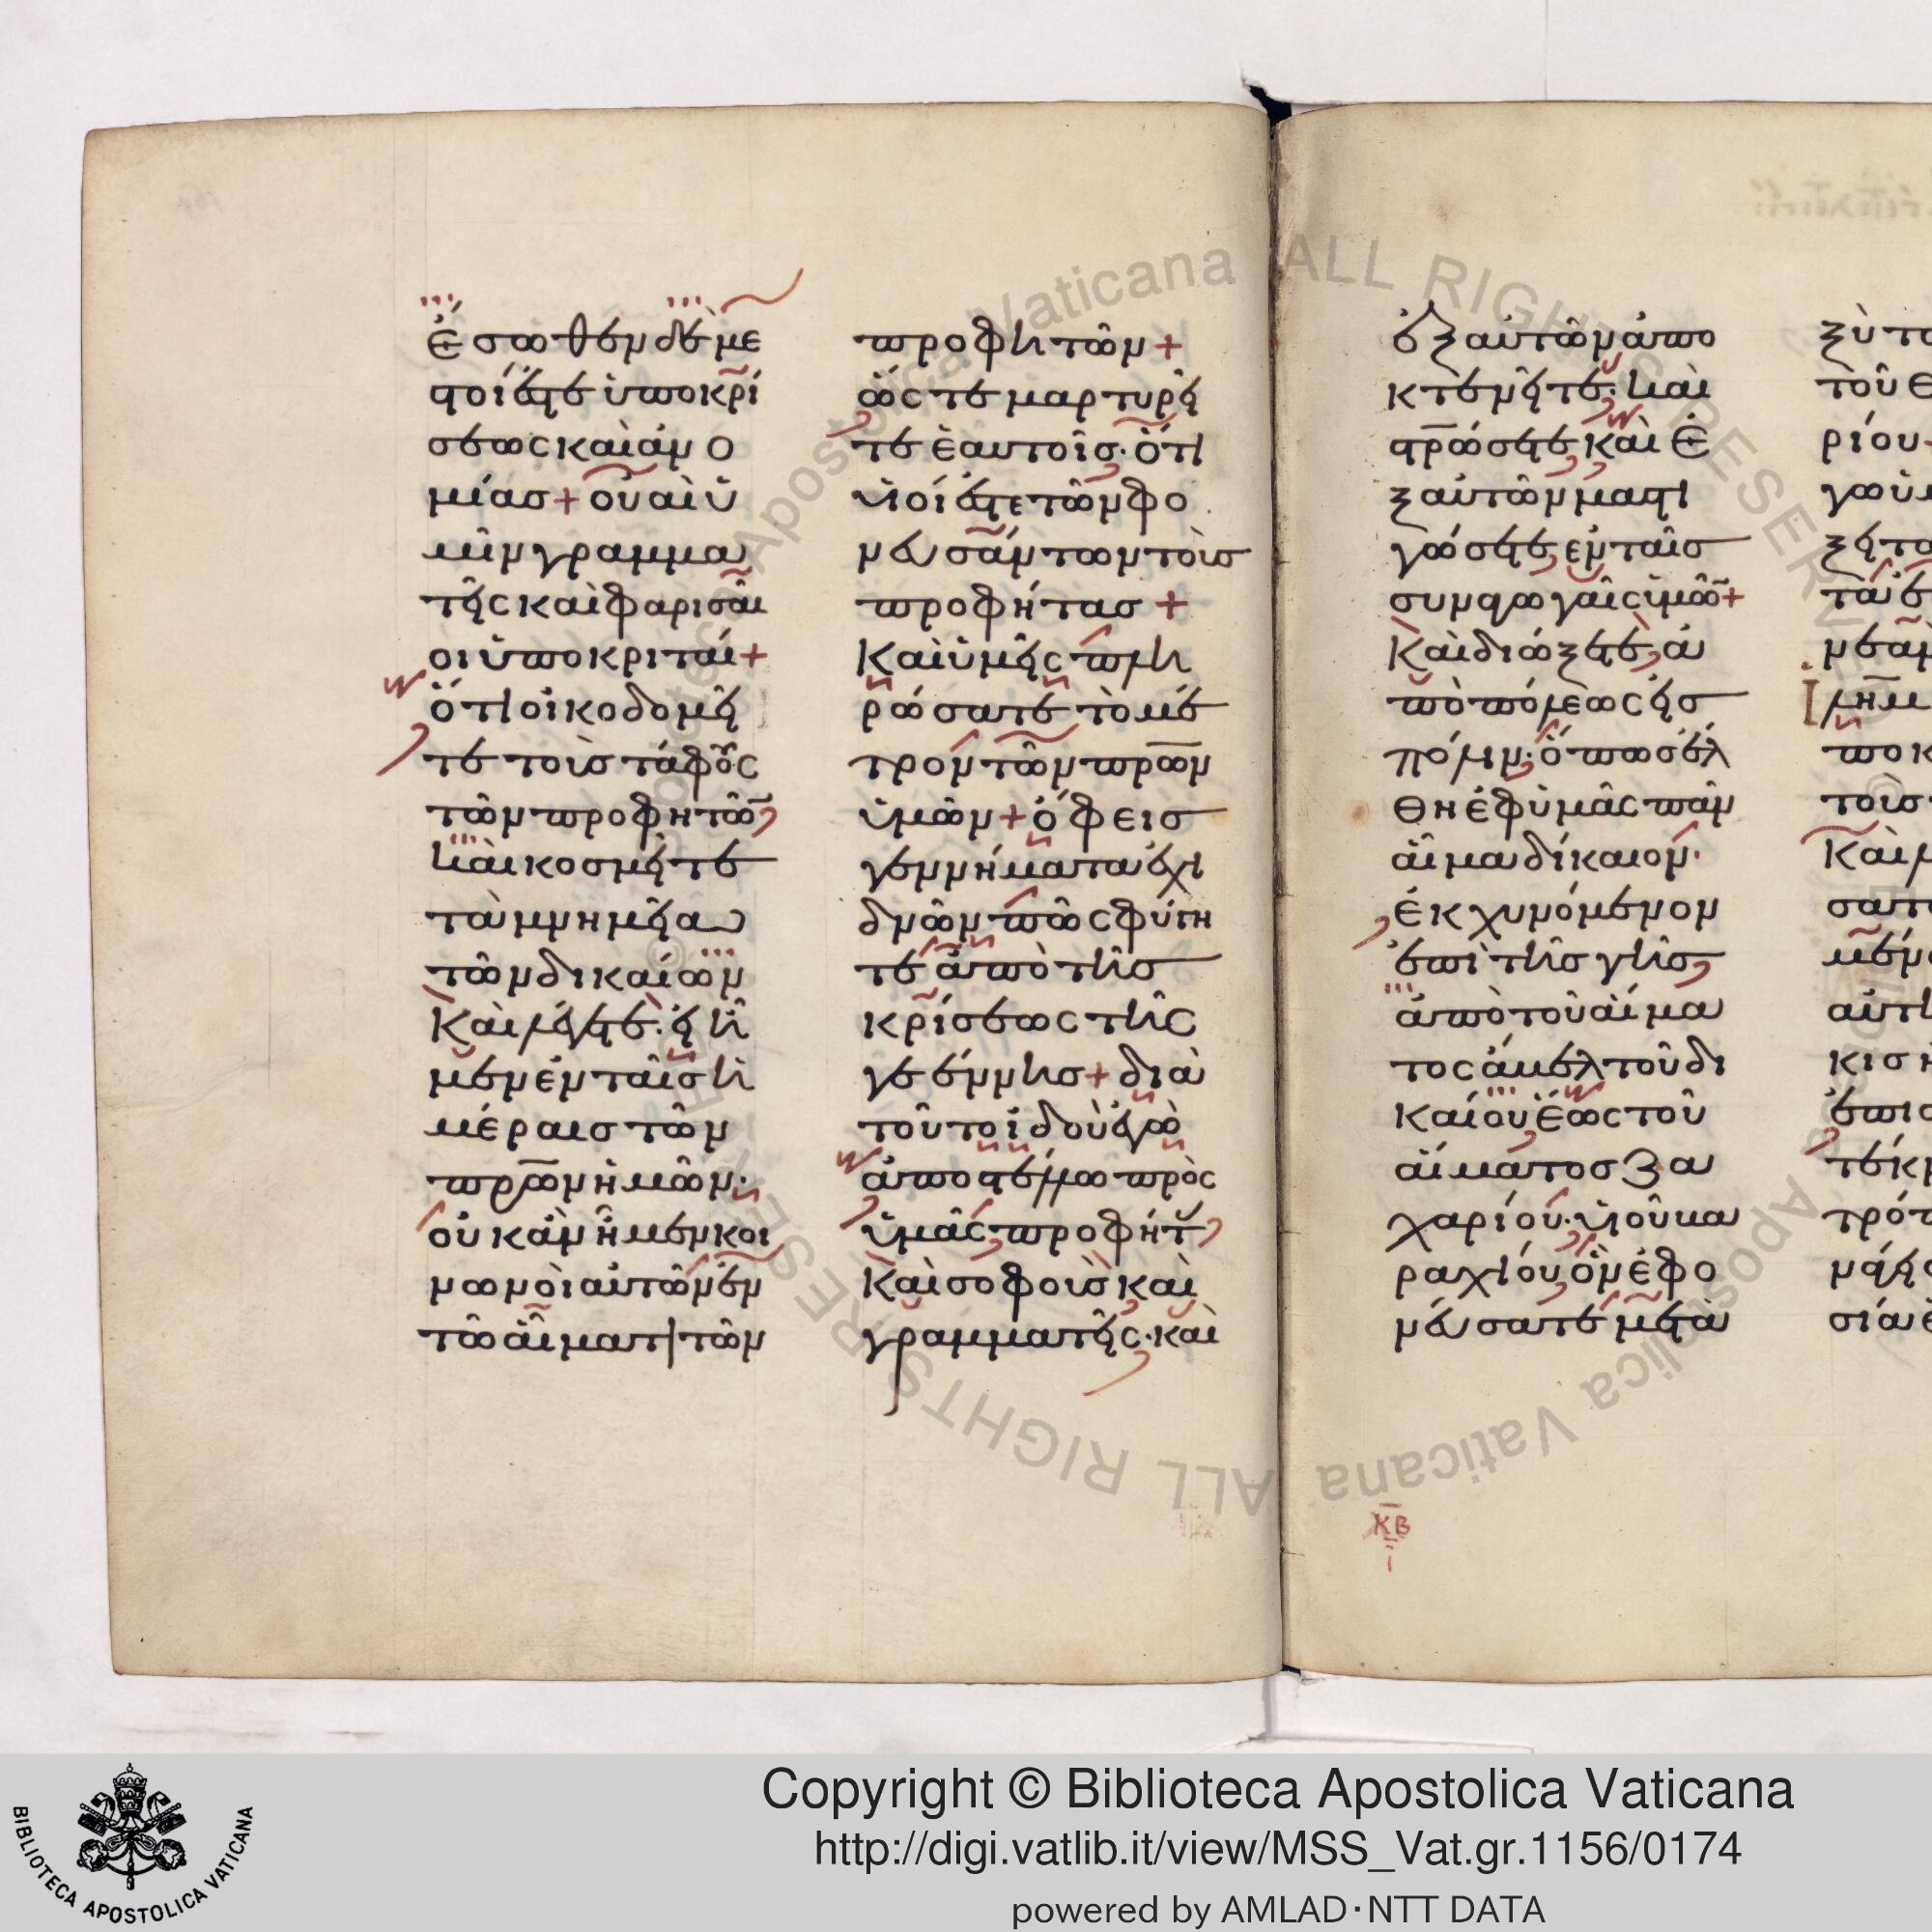 Ἔσωθεν δὲ με
στοί ἐστε ὑποκρί
σεως καὶ ἀνο
μίασ+ οὐαὶ ὑ
μῖν γραμμα
τεῖς καὶ φαρισαῖ
οι ὑποκριταί+
ὅτι οἰκοδομεῖ
τε τοὺσ τάφους
τῶν προφητῶ
καὶ κοσμεῖτε
τὰ μνημεῖα
τῶν δικαίων
Καὶ λέγετε· εἰ ἦ
μεν ἐν ταῖσ ἡ
μέραισ τῶν
πρων ἡμῶν·
οὐκ ἂν ἦμεν κοι
νωνοὶ αὐτῶν ἐν
τῶ αἵματι τῶν
προφητῶν+
ὥστε μαρτυρεῖ
τε ἑαυτοῖσ· ὅτι
υἱοί ἐστε τῶν φο
νευσάντων τοὺσ
προφήτασ+
Καὶ ὑμεῖς πλη
ρώσατε τὸ μέ
τρον τῶν πρων
ὑμῶν+ ὄφεισ
γεννήματα ἐχι
δνῶν πῶς φύγη
τε ἀπὸ τῆσ
κρίσεως τῆς
γεέννησ+ διὰ
τοῦτο ἰδοὺ ἐγὼ
ἀποστέλλω πρὸς
ὑμᾶς προφήτ
Καὶ σοφοὺσ καὶ
γραμματεῖς· καὶ
ἐξ αὐτῶν ἀπο
κτενεῖτε· καὶ
στρώσετε, καὶ ἐ
ξ αὐτῶν μαστι
γώσετε, ἐν ταῖσ
συναγωγαῖς ὑμῶ+
Καὶ διώξετε, ἀ
πὸ πόλεως εἰσ
πόλιν· ὅπωσ ἔλ
θη ἐφ ὑμᾶς πᾶν
αἷμα δίκαιον·
ἐκχυνόμενον
ἐπὶ τῆσ γῆσ,
ἀπὸ τοῦ αἵμα
τος ἄβελ τοῦ δι
καίου ἕως τοῦ
αἵματοσ Ζα
χαρίου· υἱοῦ βα
ραχίου, ὃν ἐφο
νεύσατε μετὰ
ξὺ το
τοῦ θ
ρίου+
μεν
τοὺσ
Καὶ
κισ
τρό
κβ
Copyright © Biblioteca Apostolica Vaticana
http://digi.vatlib.it/view/MSS_Vat.gr.1156/0174
powered by AMLAD·NTT DATA
BIBLIOTECA APOSTOLICA VATICANA